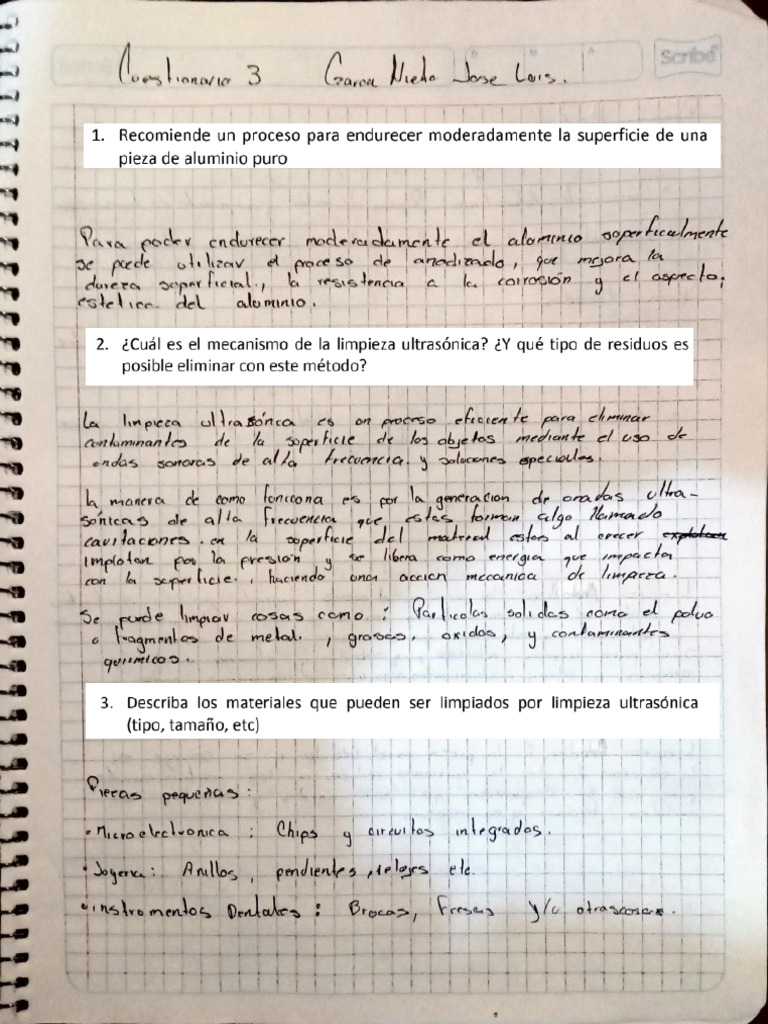 Cuestionario 3 Garcia Nieto Jose Luis.
Scribe
1. Recomiende un proceso para endurecer moderadamente la superficie de una
pieza de aluminio puro
Para poder endurecer moderadamente el aluminio superficialmente
se puede utilizar el proceso de anodizado, que mejora la
dureza superficial, la resistencia a la corrosión y el aspecto
estetico del aluminio.
2. ¿Cuál es el mecanismo de la limpieza ultrasónica? ¿Y qué tipo de residuos es
posible eliminar con este método?
La limpieza ultrasónica es un proceso eficiente para eliminar
contaminantes de la superficie de los objetos mediante el uso de
ondas sonoras de alta frecuencia y soluciones especiales.
la manera de como funciona es por la generacion de ondas ultra-
sónicas de alta frecuencia que estas forman algo llamado
cavitaciones. en la superficie del material estas al crecer
implotan por la presión y se libera como energia que impacta
con la superficie, haciendo una accion mecanica de limpieza.
Se puede limpiar cosas como: Particulas solidas como el polvo
o fragmentos de metal, grasas, oxidos, y contaminantes
quimicos.
3. Describa los materiales que pueden ser limpiados por limpieza ultrasónica
(tipo, tamaño, etc)
Piezas pequeñas:
• Microelectronica: Chips y circuitos integrados.
• Joyeria: Anillos, pendientes, relojes etc.
• instrumentos Dentales: Brocas, Fresas y/o otras cosas.